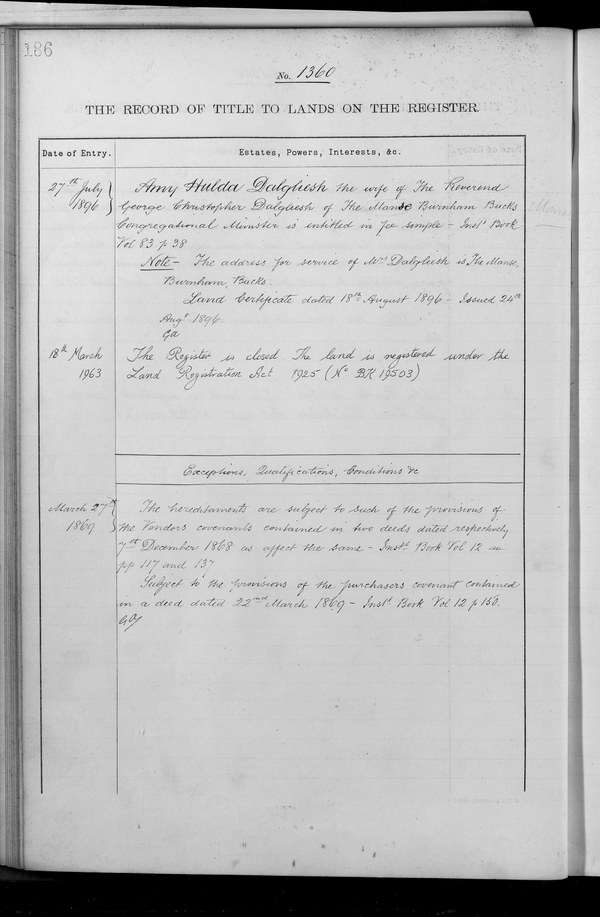 186
No. 1360
THE RECORD OF TITLE TO LANDS ON THE REGISTER.
Date of Entry.
Estates, Powers, Interests, &c.
27th July
1896
Amy Hulda Dalgliesh the wife of The Reverend
George Christopher Dalgliesh of The Manse Burnham Bucks
Congregational Minister is entitled in fee simple - Inst Book
Vol 83 p 38
Note - The address for service of Mrs Dalgliesh is The Manse,
Burnham, Bucks.
Land Certificate dated 18th August 1896 - Issued 24th
Augt 1896.
18th March
1963
The Register is closed The land is registered under the
Land Registration Act 1925 (No BK 19503)
Exceptions, Qualifications, Conditions &c
March 27th
1869
The hereditaments are subject to such of the provisions of
the Vendors covenants contained in two deeds dated respectively
7th December 1868 as affect the same - Inst Book Vol 12
pp 117 and 137
Subject to the provisions of the purchasers covenant contained
in a deed dated 22nd March 1869 - Inst Book Vol 12 p 150.